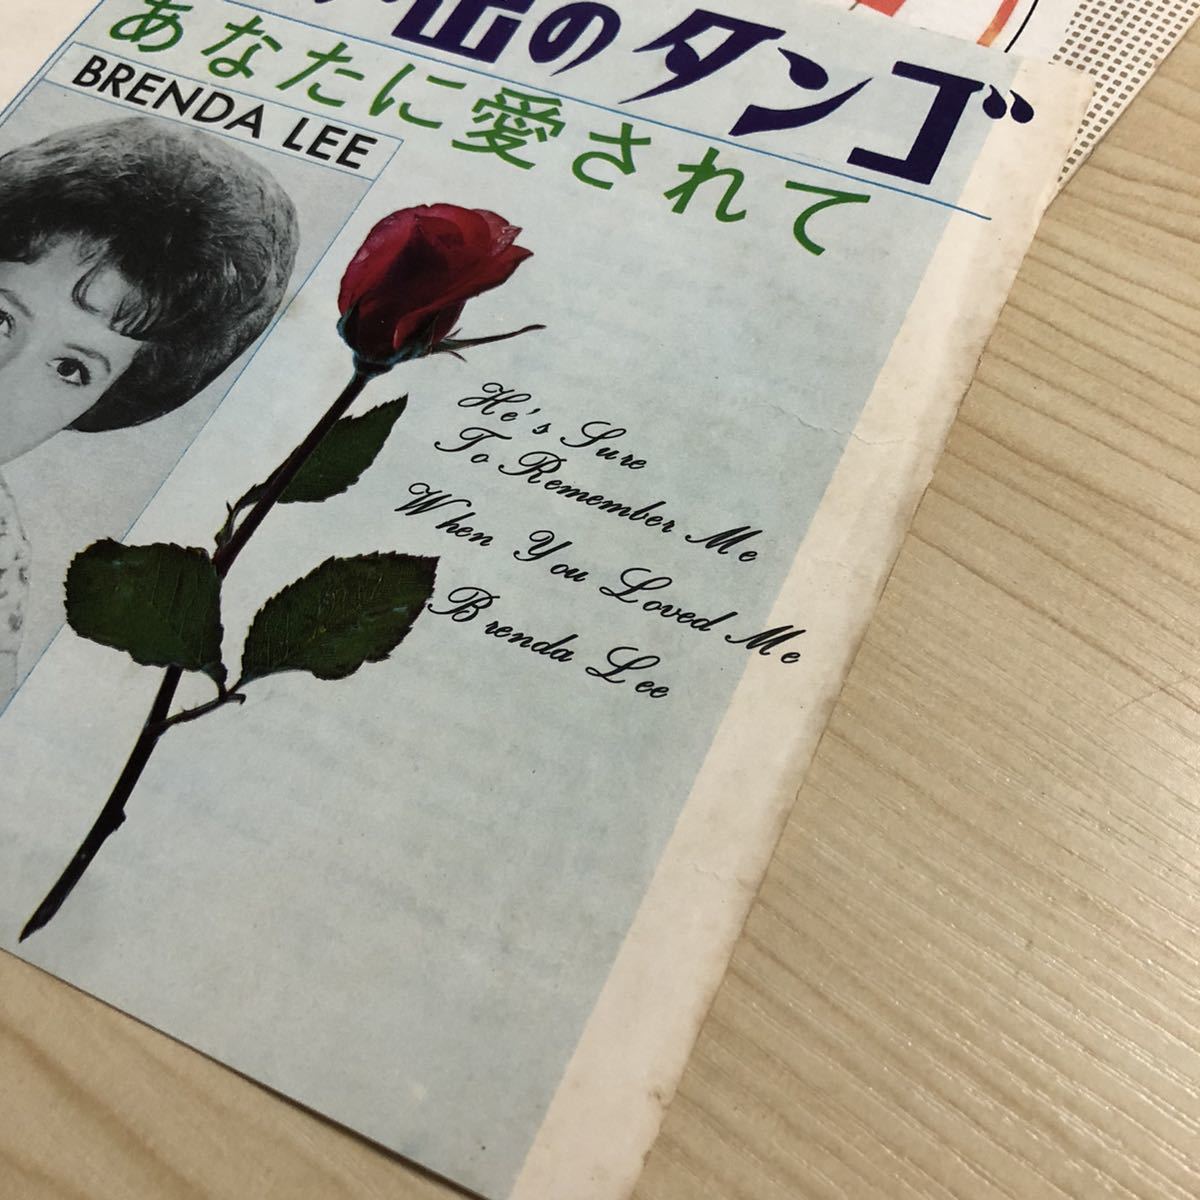 出のタンゴ
あなたに愛されて
BRENDA LEE
He's Sure
To Remember Me
When You Loved Me
Brenda Lee